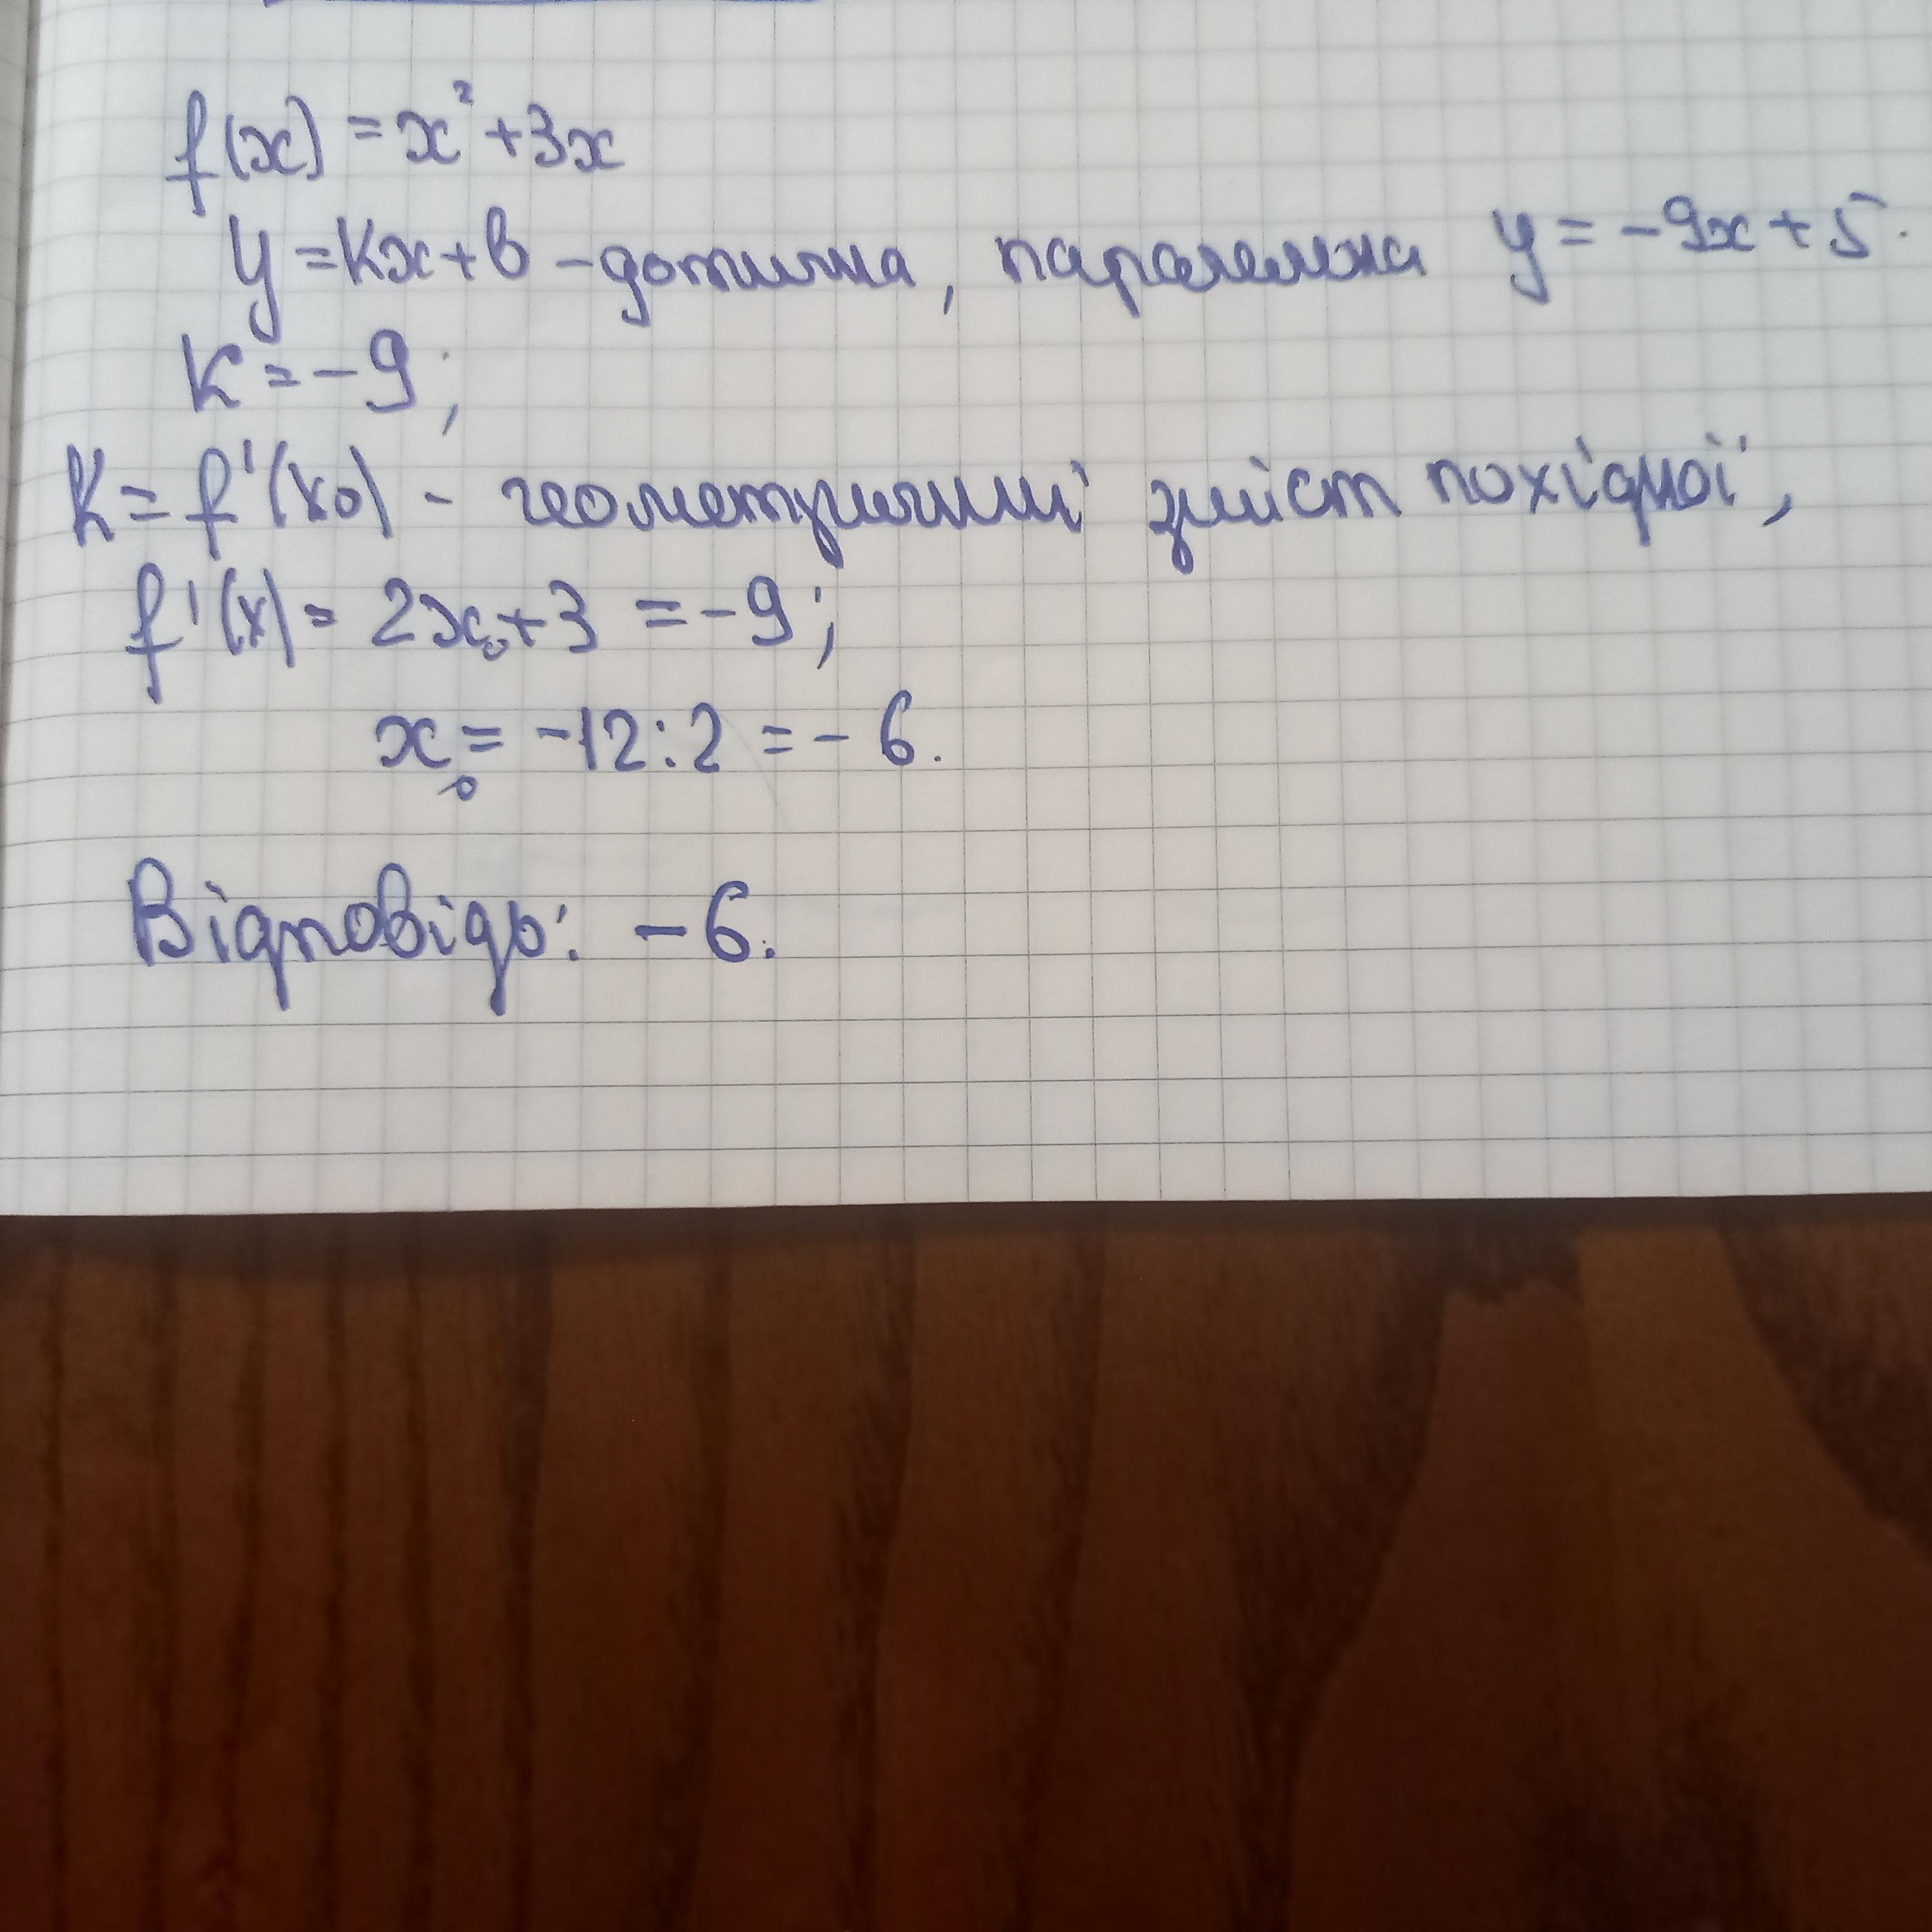 f(x) = x² + 3x
y = kx + b – дотична, паралельна y = -9x + 5.
k = -9;
k = f'(x₀) - геометричний зміст похідної,
f'(x) = 2x₀ + 3 = -9;
x₀ = -12 : 2 = -6.
Відповідь: -6.